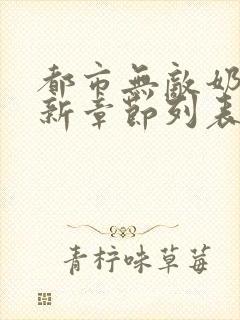 都市無敵奶
新章節列表
青柠味草莓